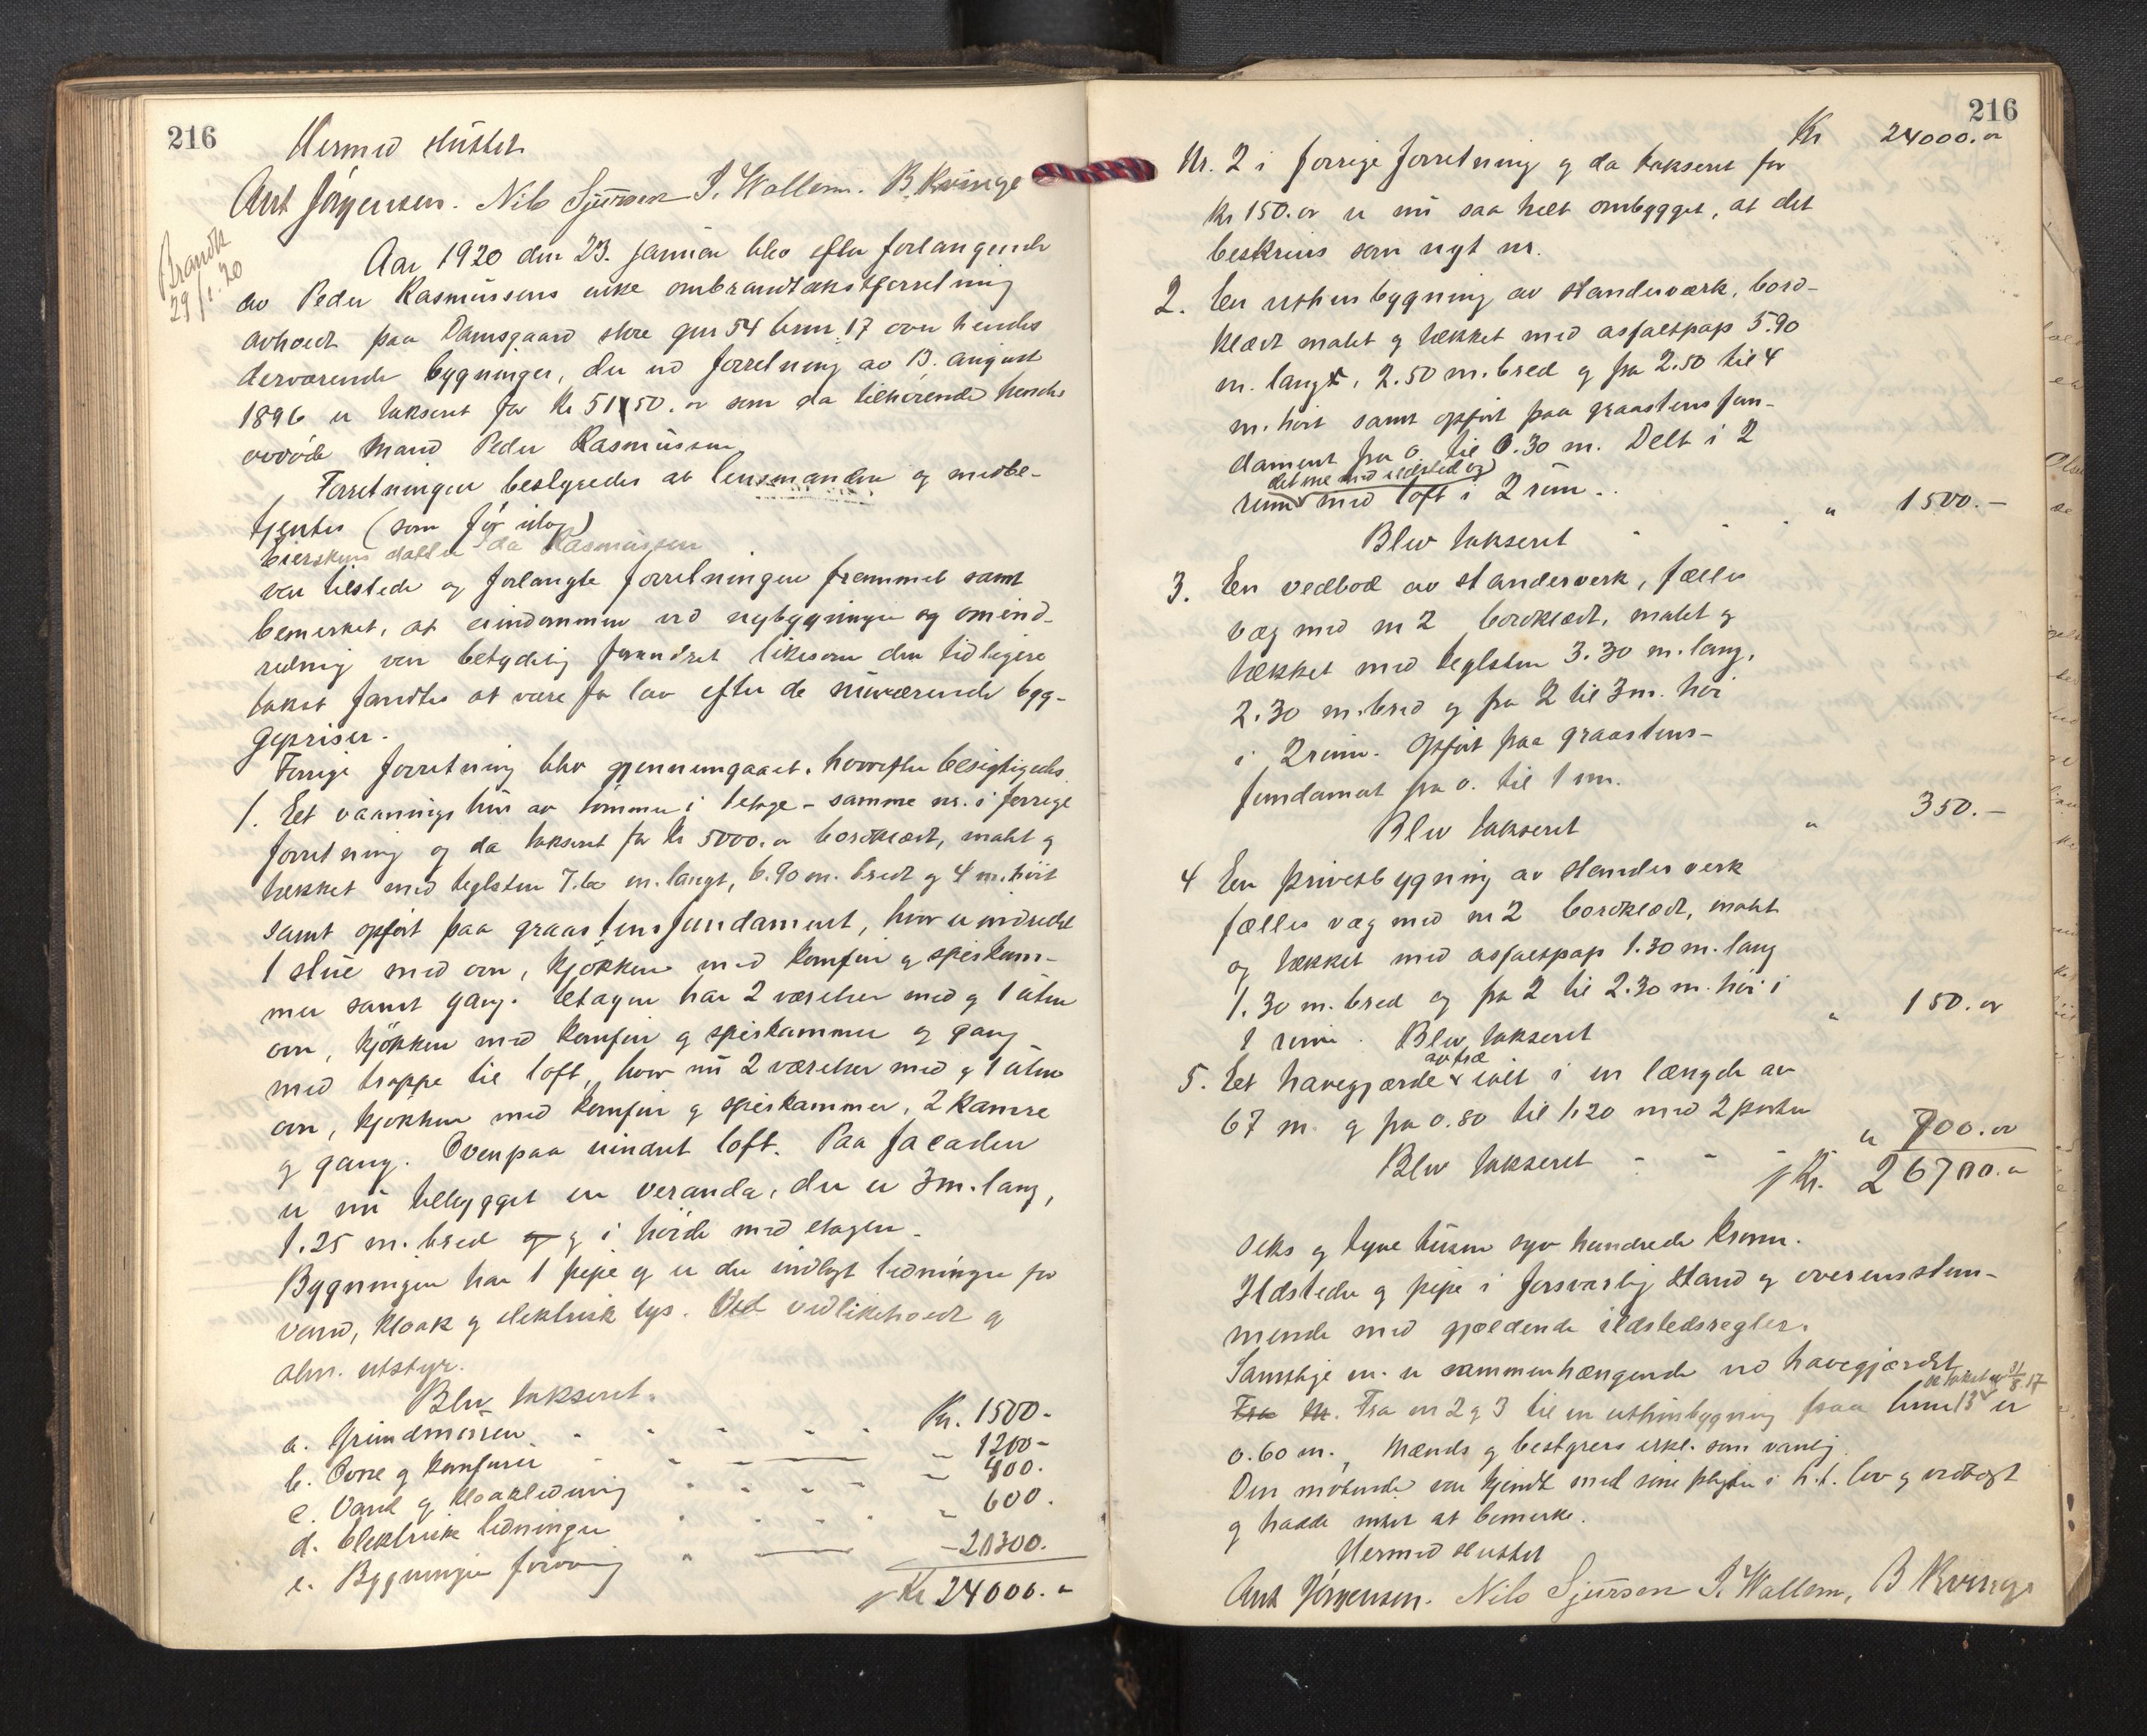 216
Hermed sluttet
Ant Jørgensen. Nils Sjursen I. Wallem. B. Kvinge
Brandt
29/1. 20
Aar 1920 den 23. januar blev efter forlangende
av Peder Rasmussens enke ombrandtakstforretning
avholdt paa Damsgaard store gnr 54 brnr 17 over hendes
derværende bygninger, der ved forretning av 13. august
1896 er takseret for Kr 5150. or som da tilhørende hendes
avdøde mand Peder Rasmussen
Forretningen bestyredes at lensmanden og medbe-
tjentes (som før idag)
Eierskens datter Ida Rasmussen
var tilstede og forlangte forretningen fremmet samt
bemerket, at eiendommen ved nybygninger og omind-
redning var betydelig forandret likesom den tidligere
takst fandtes at være for lav efter de nuværende byg-
gepriser.
Forrige forretning blev gjennemgaaet, hvorefter besigtigedes
1. Et vaaningshus av tømmer i 1 etage - samme nr. i forrige
forretning og da takseret for Kr 5000. or bordklædt, malt og
tækket med teglsten 7.60 m. langt, 6.90 m. bredt og 4 m. høit
samt opført paa graastensfundament, hvor er indredet
1 stue med ovn, kjøkken med komfur og spiskam-
mer samt gang. Etagen har 2 værelser med og 1 uten
ovn, kjøkken med komfur og spiskammer og gang
med trappe til loft, hvor nu 2 værelser med og 1 uten
ovn, kjøkken med komfur og spiskammer, 2 kamre
og gang. Ovenpaa uindret loft. Paa facaden
er nu tilbygget en veranda, der er 3 m. lang,
1.25 m. bred og i høide med etagen.
Bygningen har 1 pipe og er der indlagt ledninger for
vand, kloak og elektrisk lys. Vel vedlikeholdt og
alm. utstyr.
Blev takseret.
a. Grundmuren Kr. 1500-
b. Ovne og komfurer " 1200-
c. Vand og kloakledning " 400.
d. Elektriske ledninger " 600.
e. Bygningen forøvrig - 20300.
Kr 24000.-
216
Kr 24000. or
Nr. 2 i forrige forretning og da takseret for
Kr 150. or er nu saa helt ombygget, at det
beskrives som nyt nr.
2. En uthusbygning av standerværk, bord-
klædt malt og tækket med asfaltpap 5.90
m. lang, 2.50 m. bred og fra 2.50 til 4
m. høit samt opført paa graastensfun-
dament fra 0 til 0.30 m. Delt i 2
det ene med ildsted og
rum med loft i 2 rum.
Blev takseret " 1500.-
3. En vedbod av standerverk, fælles
væg med nr 2 bordklædt, malt og
tækket med teglsten 3.30 m. lang,
2.30 m. bred og fra 2 til 3 m. høi
i 2 rum. Opført paa graastens-
fundamat fra 0. til 1 m.
Blev takseret " 350.-
4 En privetbygning av standerverk
fælles væg med nr 2 bordklædt, malt
og tækket med asfaltpap 1.30 m. lang
1.30 m. bred og fra 2 til 2.30 m. høi i
1 rum. Blev takseret " 150. or
av træ
5. Et havegjærde ialt i en længde av
67 m. og fra 0.80 til 1.20 med 2 porter
Blev takseret " 700. or
Kr. 26700. or
seks og tyve tusen syv hundrede kroner.
Ildsteder og pipe i forsvarlig stand og overensstem-
mende med gjældende ildstedsregler.
Samtlige nr. er sammenhængende ved havegjærdet
se takst av 31/8.17
Fra nr. Fra nr 2 og 3 til en uthusbygning paa brnr 13 er
0.60 m., Mænds og bestyrers erkl. som vanlig
Den møtende var kjendt med sine pligter i h.t. lov og vedtægt
og hadde intet at bemerke.
Hermed sluttet
Ant Jørgensen. Nils Sjursen I. Wallem, B Kvinge